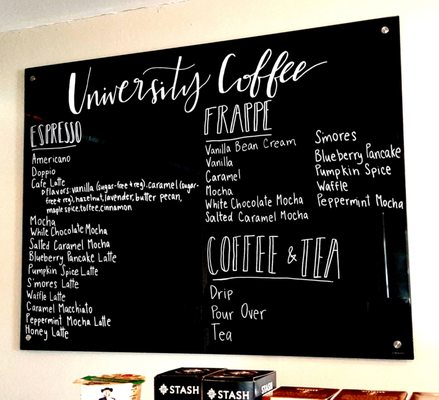 University Coffee
ESPRESSO
Americano
Doppio
Cafe Latte
flavors: vanilla (sugar-free & reg), caramel (sugar-
free & reg), hazelnut, lavender, butter pecan,
maple spice, toffee, cinnamon
Mocha
White Chocolate Mocha
Salted Caramel Mocha
Blueberry Pancake Latte
Pumpkin Spice Latte
S'mores Latte
Waffle Latte
Caramel Macchiato
Peppermint Mocha Latte
Honey Latte
FRAPPE
Vanilla Bean Cream
Vanilla
Caramel
Mocha
White Chocolate Mocha
Salted Caramel Mocha
S'mores
Blueberry Pancake
Pumpkin Spice
Waffle
Peppermint Mocha
COFFEE & TEA
Drip
Pour Over
Tea
STASH
STASH